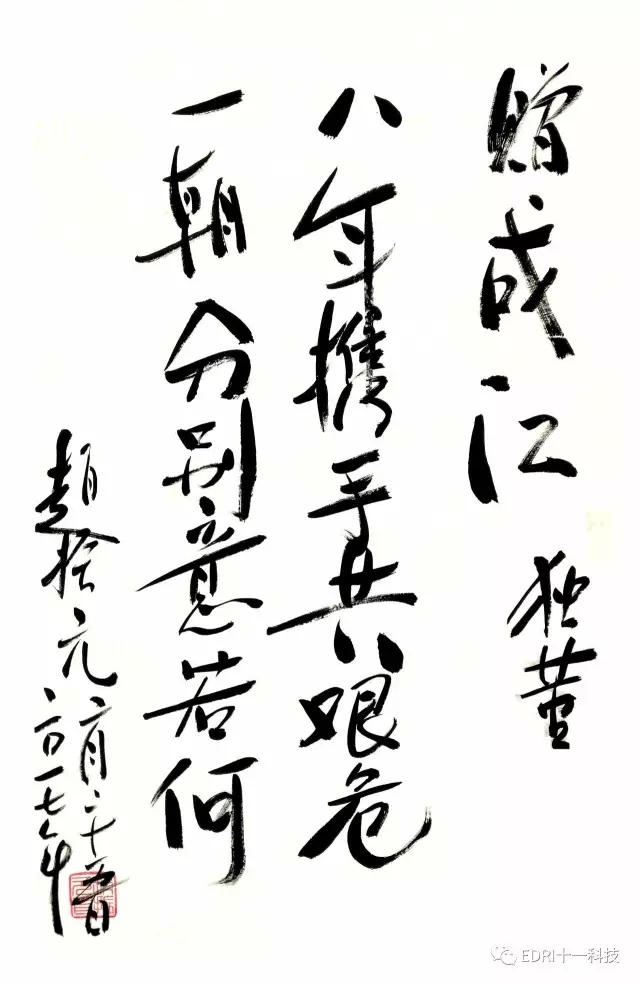 赠成江 独董
八年携手共艰危
一朝分别意若何
趙振元
二〇一七年
六月二十五日
EDRI十一科技